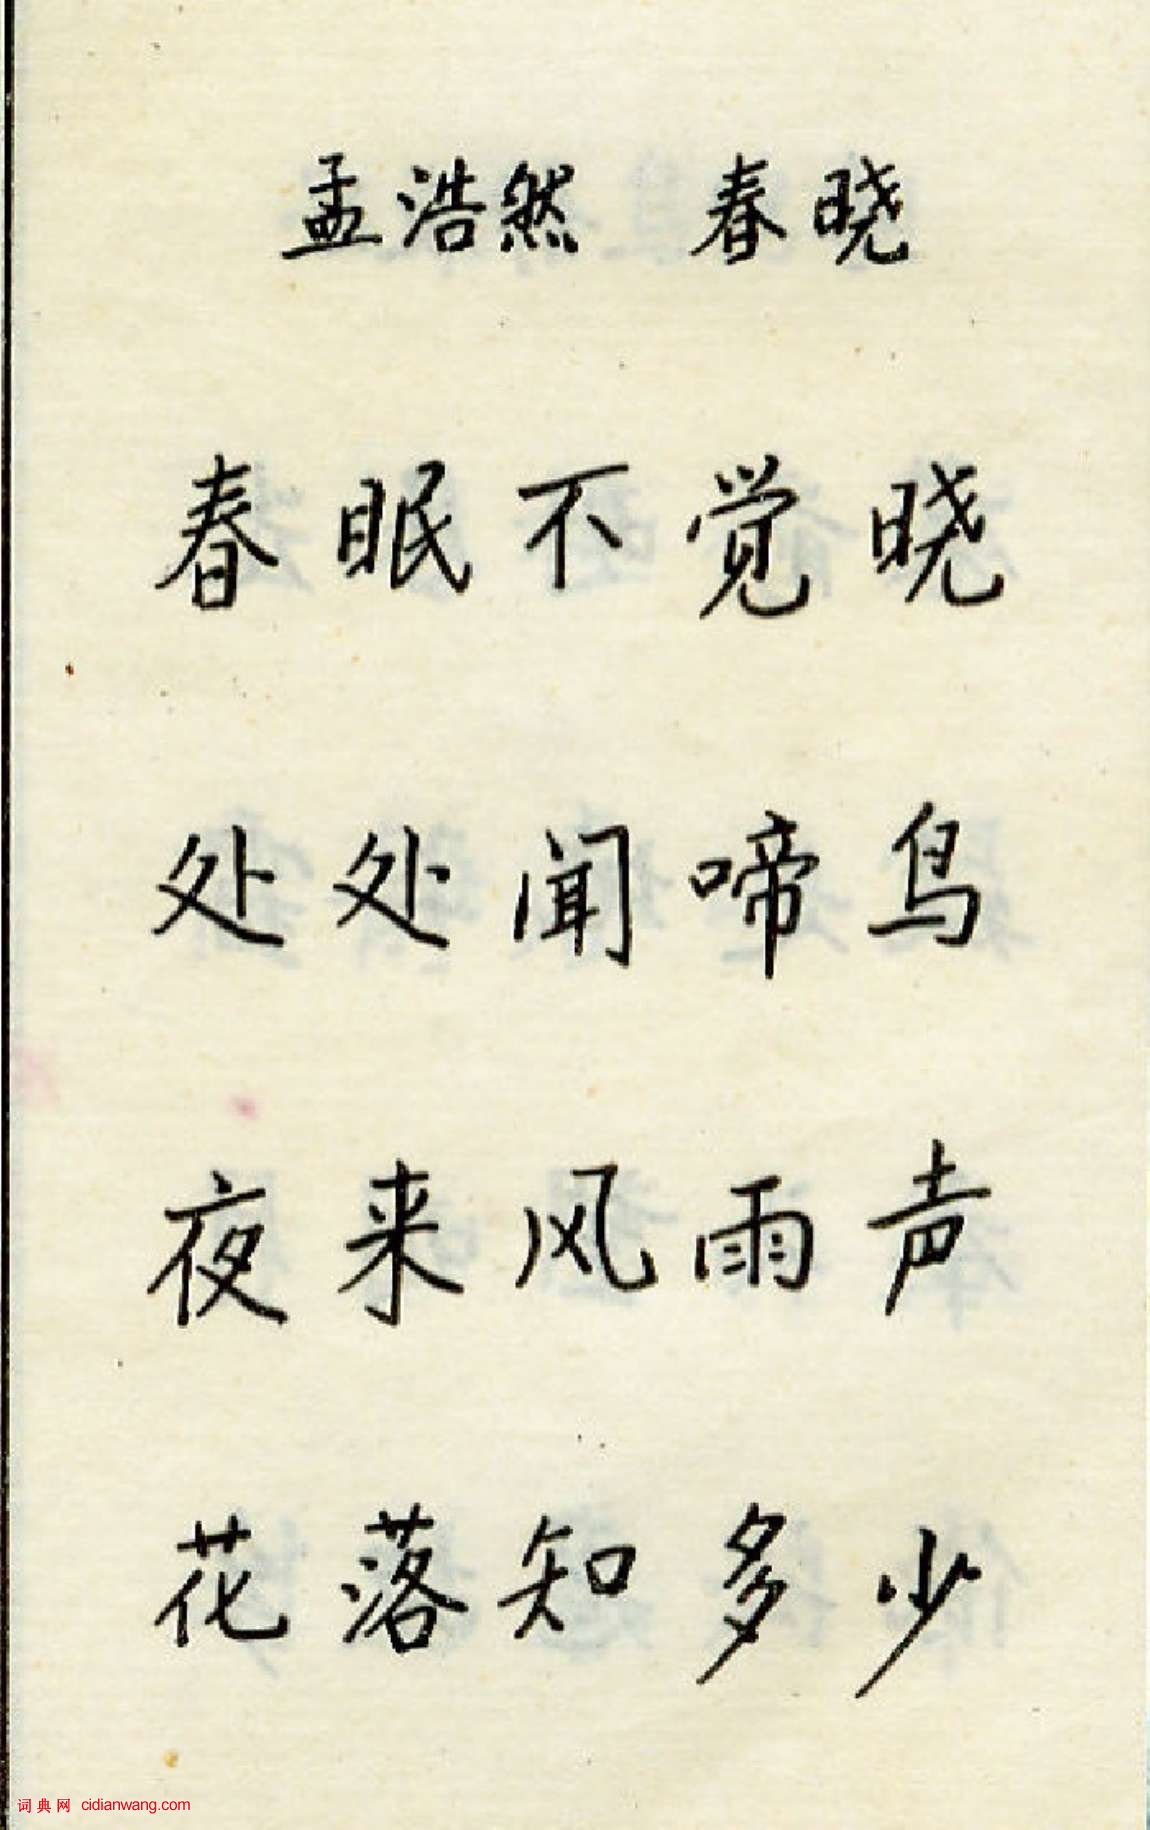 孟浩然 春晓
春眠不觉晓
处处闻啼鸟
夜来风雨声
花落知多少
词典网 cidianwang.com